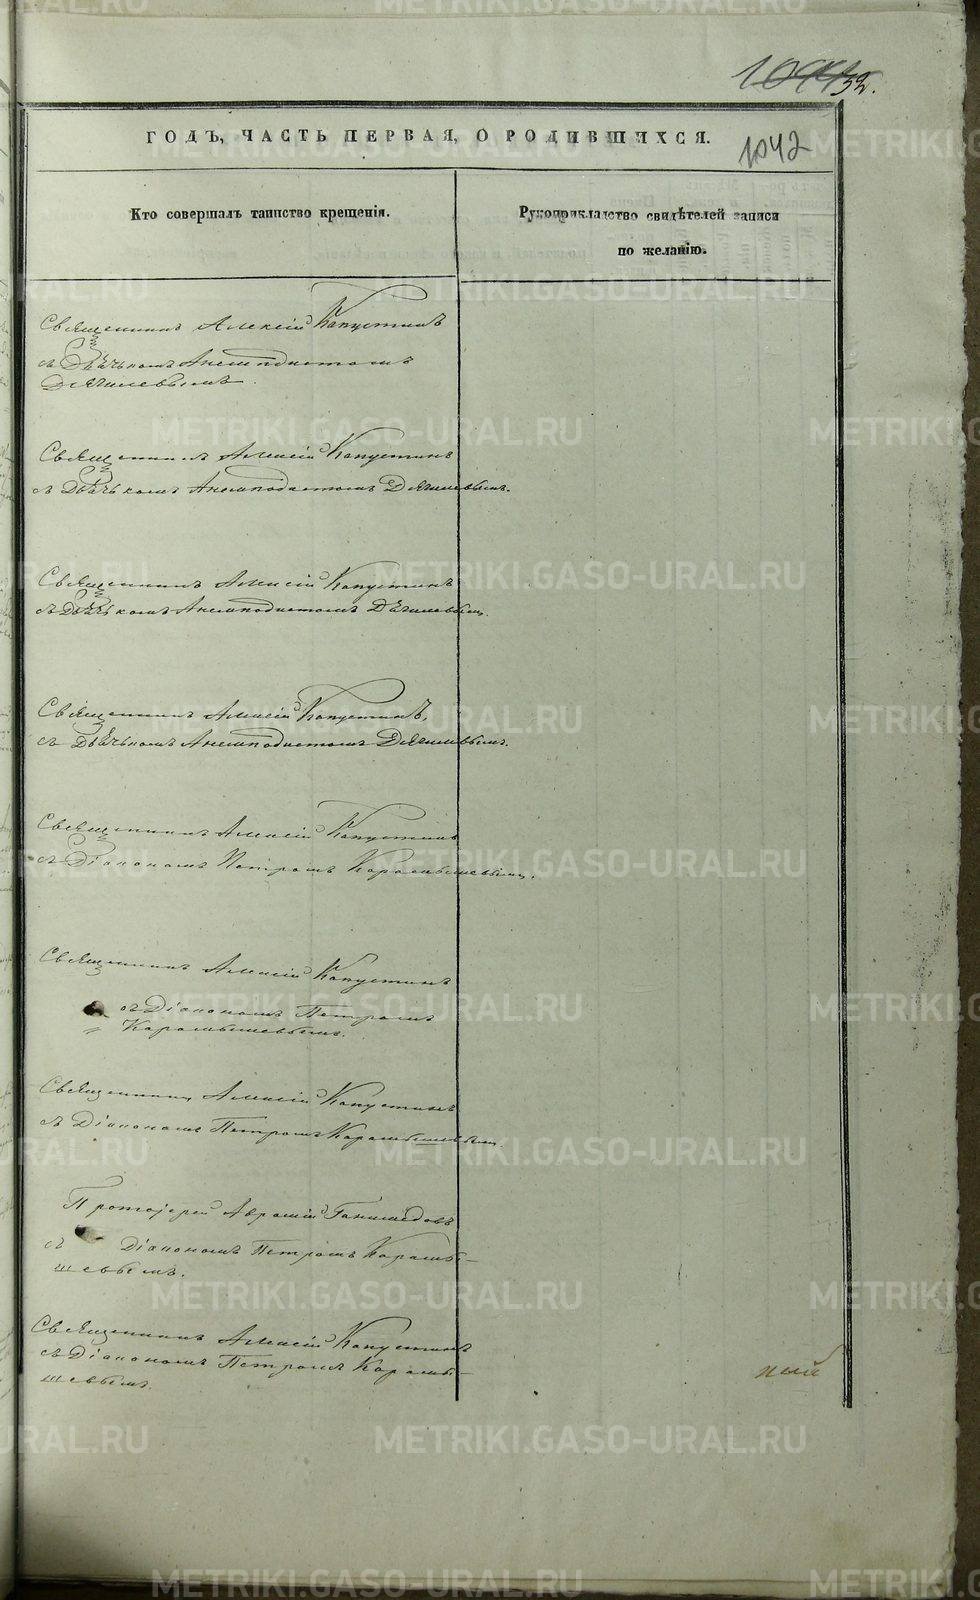 32.
ГОДЪ, ЧАСТЬ ПЕРВАЯ, О РОДИВШИХСЯ.
1042
Кто совершалъ таинство крещенія.
Рукоприкладство свидѣтелей записи
по желанію.
Священникъ Алексій Капустинъ
съ Дьячькомъ Анемподистомъ
Дягилевымъ.
Священникъ Алексій Капустинъ
съ Дьячькомъ Анемподистомъ Дягилевымъ.
Священникъ Алексій Капустинъ
съ Дьячькомъ Анемподистомъ Дягилевымъ.
Священникъ Алексій Капустинъ,
съ Дьячькомъ Анемподистомъ Дягилевымъ.
Священникъ Алексій Капустинъ
съ Діакономъ Петромъ Карамышевымъ.
Священникъ Алексій Капустинъ
съ Діакономъ Петромъ
Карамышевымъ.
Священникъ Алексій Капустинъ
съ Діакономъ Петромъ Карамышевымъ.
Протоіерей Аврамій
съ Діакономъ Петромъ Карамы-
шевымъ.
Священникъ Алексій Капустинъ
съ Діакономъ Петромъ Карамы-
шевымъ.
ный
METRIKI.GASO-URAL.RU